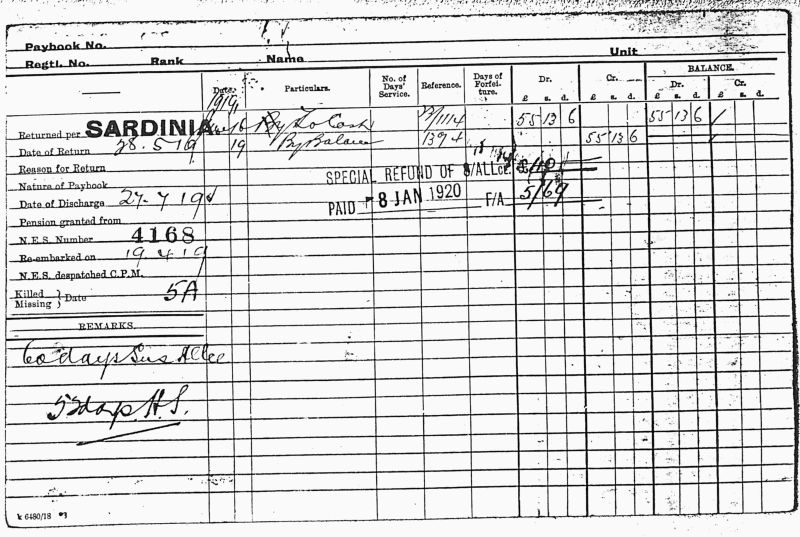 Paybook No.
Regtl. No. Rank Name Unit
Date. Particulars. No. of Days' Service. Reference. Days of Forfeiture. Dr. £ s. d. Cr. £ s. d. BALANCE. Dr. £ s. d. Cr. £ s. d.
1919
Returned per SARDINIA 16 To Cash 55 13 6 55 13 6
Date of Return 28.5.19 19 By Balance 1394 55 13 6
Reason for Return
SPECIAL REFUND OF S/ALLce.
Nature of Paybook
Date of Discharge 27.7.19
PAID 8 JAN 1920 F/A 5/69
Pension granted from
N.E.S. Number 4168
Re-embarked on 19 4 19
N.E.S. despatched C.P.M.
Killed Missing } Date 5A
REMARKS.
60 days Sus Allce
53 days H.S.
k 6480/18